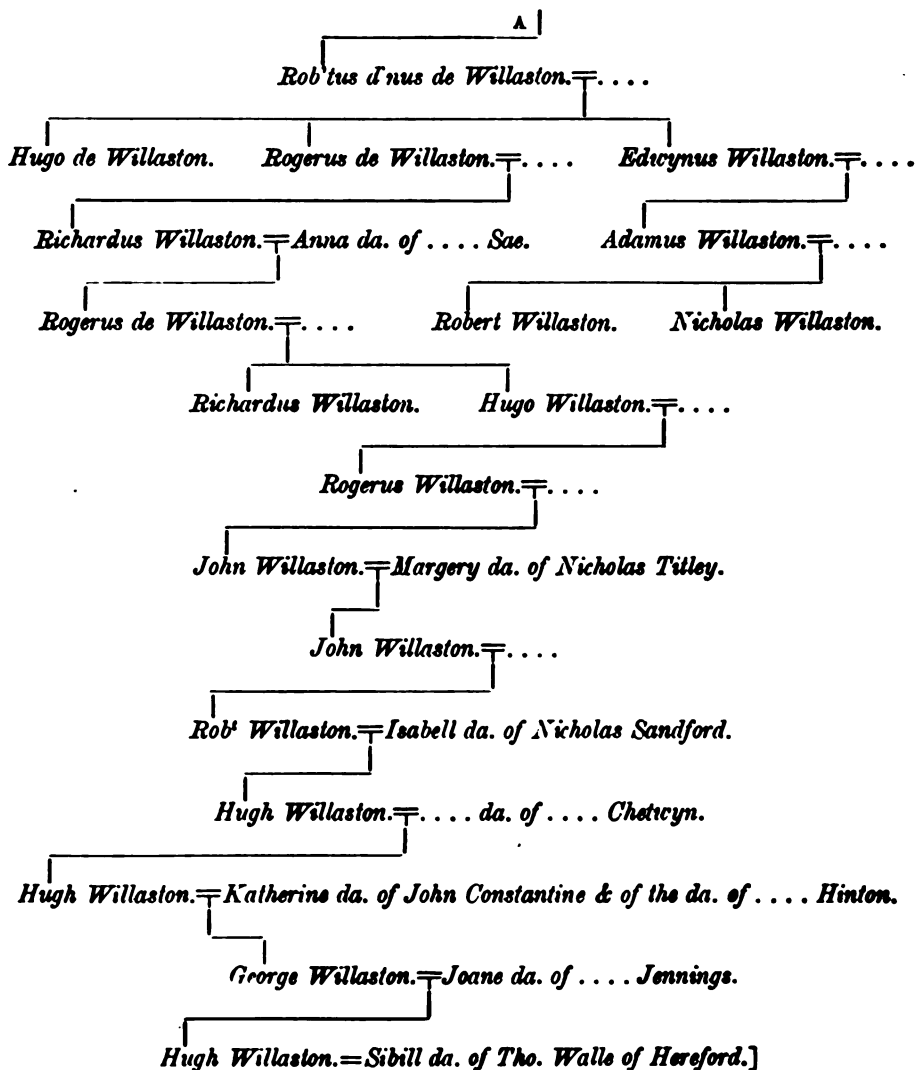 A
Rob'tus d'nus de Willaston.=. . . .
Hugo de Willaston. Rogerus de Willaston.=. . . . Edwynus Willaston.=. . . .
Richardus Willaston.=Anna da. of . . . . Sae. Adamus Willaston.=. . . .
Rogerus de Willaston.=. . . . Robert Willaston. Nicholas Willaston.
Richardus Willaston. Hugo Willaston.=. . . .
Rogerus Willaston.=. . . .
John Willaston.=Margery da. of Nicholas Titley.
John Willaston.=. . . .
Robt Willaston.=Isabell da. of Nicholas Sandford.
Hugh Willaston.=. . . . da. of . . . . Chetwyn.
Hugh Willaston.=Katherine da. of John Constantine & of the da. of . . . . Hinton.
George Willaston.=Joane da. of . . . . Jennings.
Hugh Willaston.=Sibill da. of Tho. Walle of Hereford.]